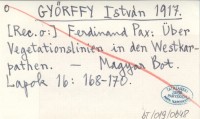 o GYŐRFFY István 1917.
[Rec. o.] Ferdinand Pax: Über
Vegetationslinien in den Westkar-
pathen. — Magyar Bot.
Lapok 16: 168-170.